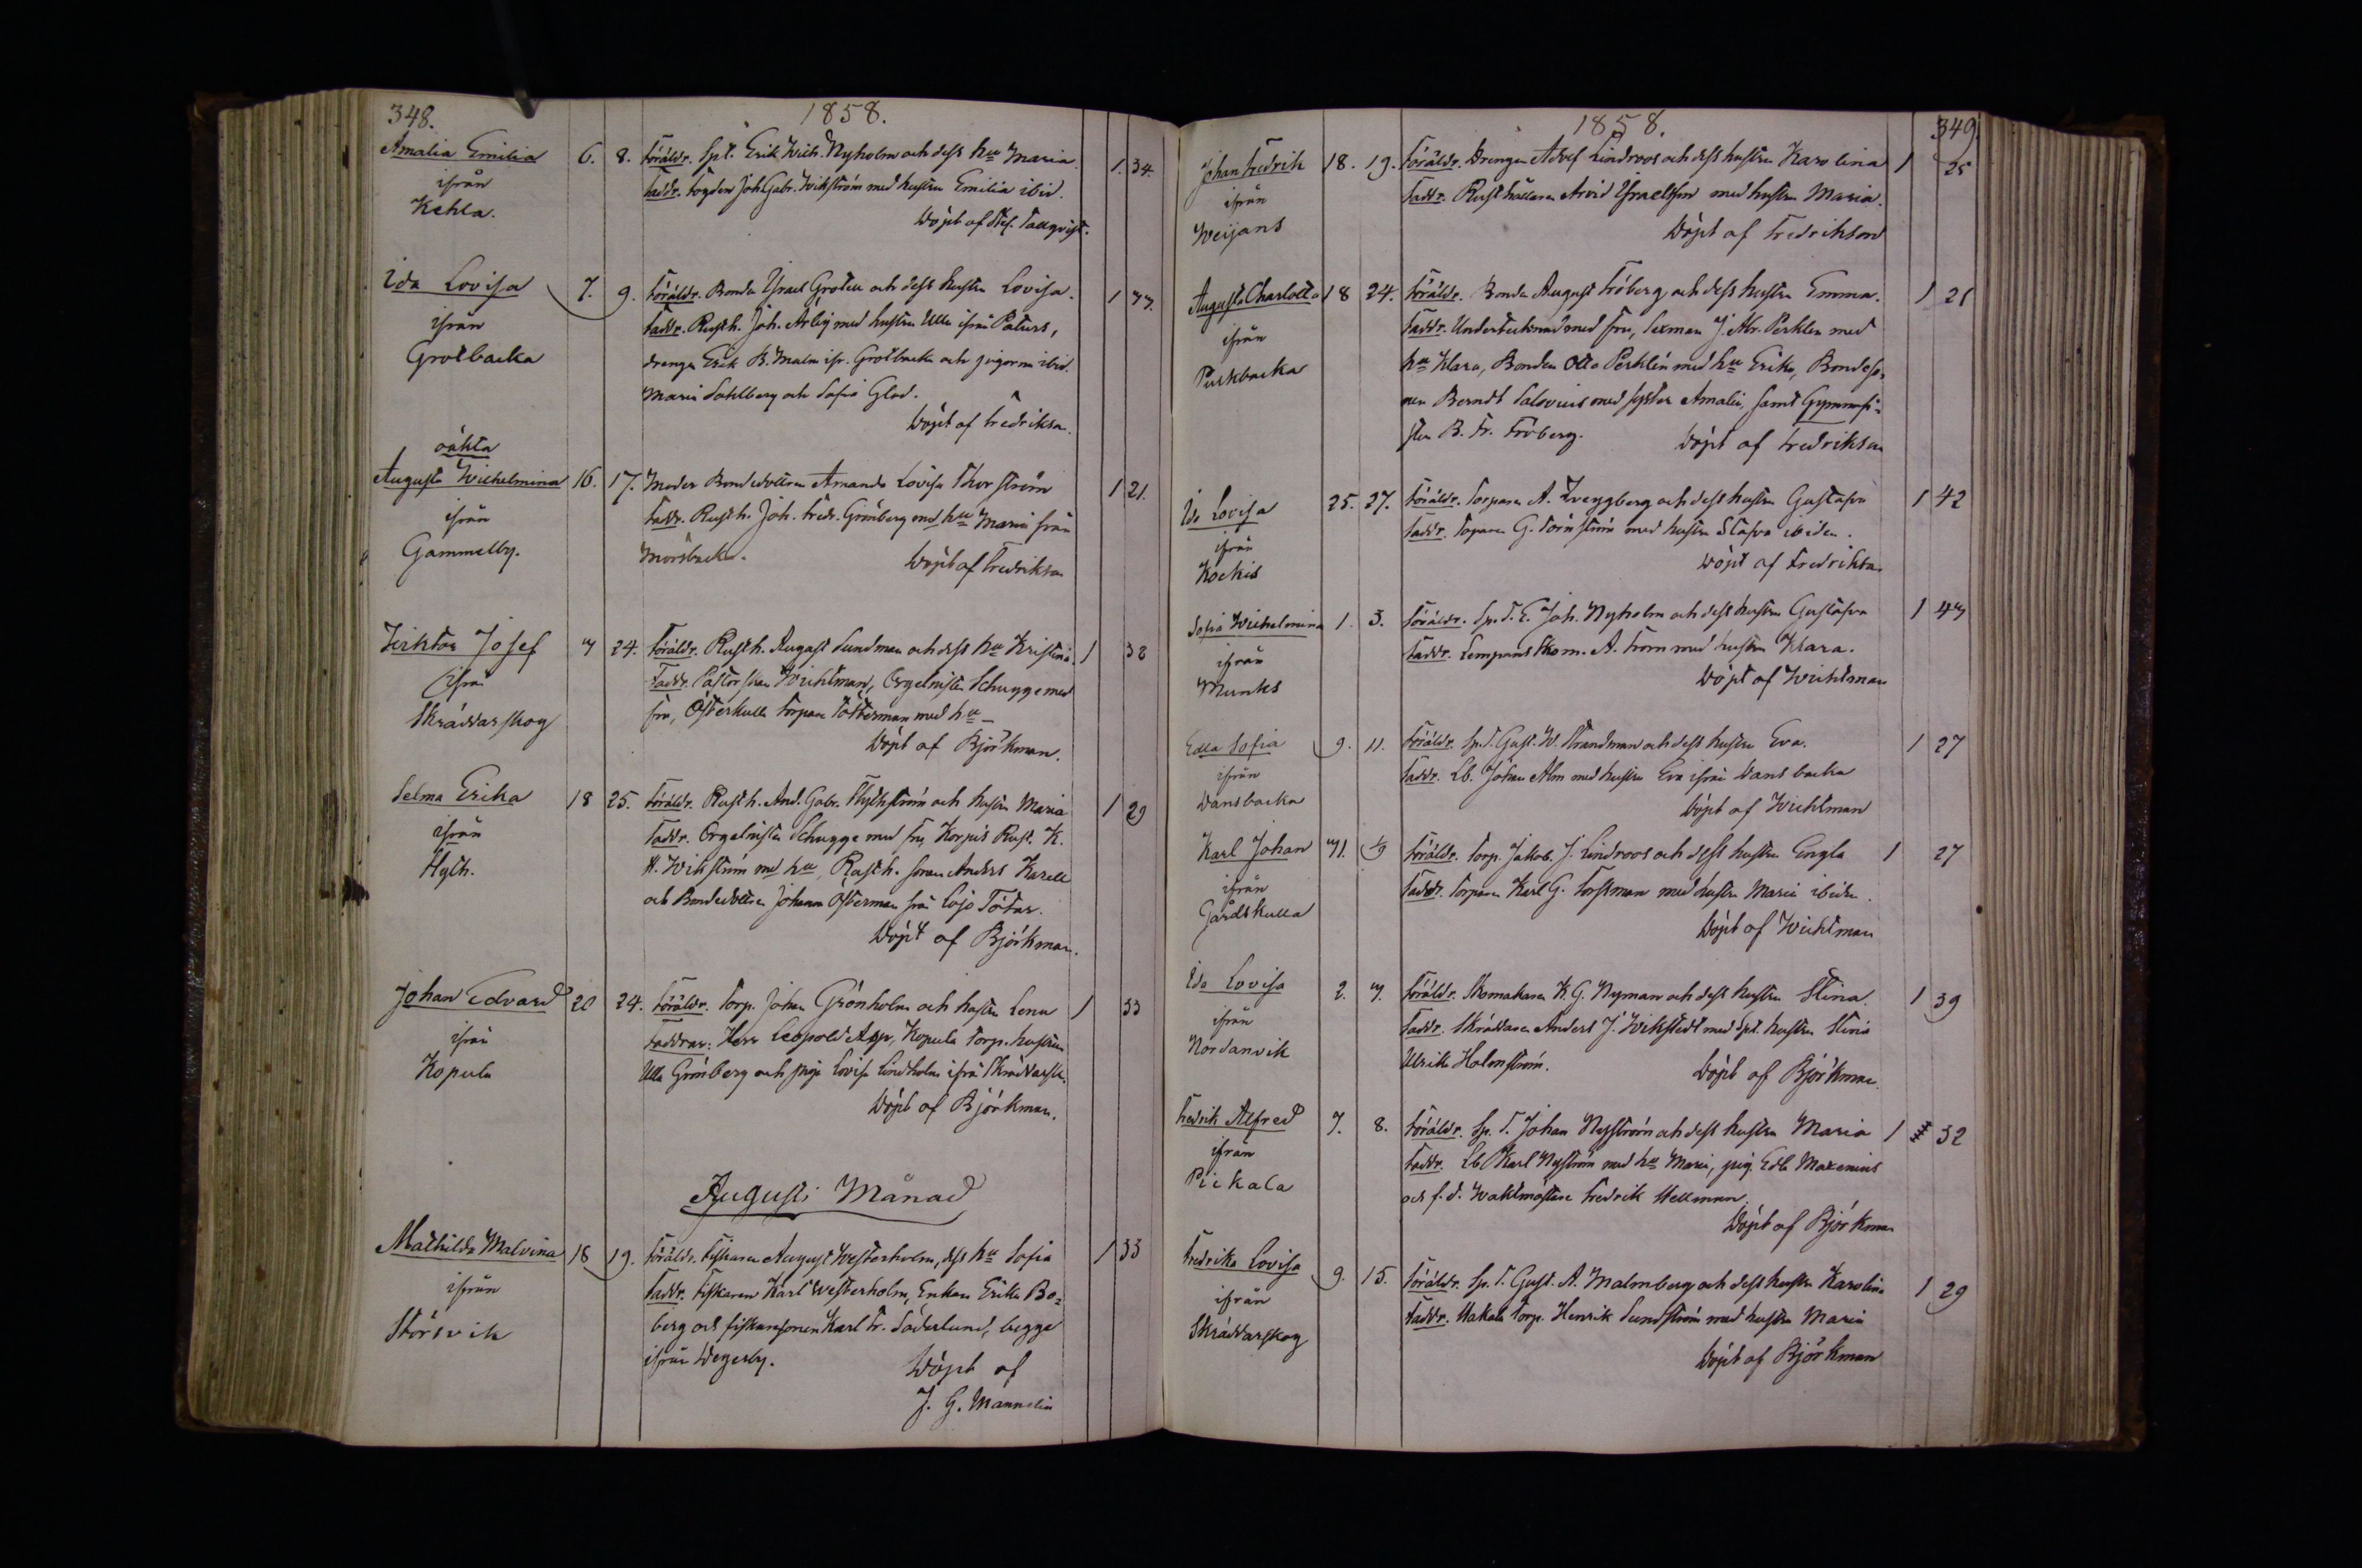 348.
1858.
Amalia Emilia 6. 8. Föräldr. Spt. Erik Wilh. Nyholm och dess hu Maria 1. 34.
ifrån Faddr. Fogden Joh. Gabr. Wikström med hustru Emilia ibid.
Kehla. Döpt af Tallqvist.
Ida Lovisa 7. 9. Föräldr. Bonde Israel Grotell och dess hustru Lovisa. 1
ifrån Faddr. Rusth. Joh. Arlig med hustru Ulla ifrån Paturs,
Grotbacka drengen Erik B. Malm ifr. Grotbacka och pigorna ibid.
Maria Sahlberg och Sofia Glad.
Döpt af Fredrikson.
oäkta
Augusta Wilhelmina 16. 17. Moder Bondedottren Amanda Lovisa Thorström 1 21.
ifrån Faddr. Rusth. Joh. Fredr. Grönberg med hu Maria från
Gammelby. Morsbacka. Döpt af Fredrikson
Viktor Josef 24. Föräldr. Rusth. August Sundman och dess hu Kristina. 1 38
ifrån Faddr. Pastorskan Wichtman, Orgelnisten Schugge med
Skräddarskog fru, Österkulla Torpare Tötterman med hu
Döpt af Björkman.
Selma Erika 18 25. Föräldr. Rusth. And. Gabr. Flythström och hustru Maria 1 29
ifrån Faddr. Orgelnisten Schugge med fru, Korpis Rust. K.
Flyth. H. Wikström med hu, Rusth. sonen Anders Karell
och Bondedottren Johanna Österman från Lojo Tötar.
Döpt af Björkman.
Johan Edvard 20 24. Föräldr. Torp. Johan Grönholm och hustru Lena 1 33
ifrån Faddrar: Herr Leopold Kopula Torp. hustrun
Kopula Ulla Grönberg och piga Lovisa Lindholm ifrån Skräddarsk.
Döpt af Björkman.
Augusti Månad
Mathilda Malvina 18 19. Föräldr. Fiskaren August Westerholm, dess hu Sofia 1 33
ifrån Faddr. Fiskaren Karl Westerholm, Enkan Erika Bo-
Störsvik berg och fiskaresonen Karl Fr. Söderlund, begge
ifrån Wegerby. Döpt af
J. G. Mannelin
1858.
349.
Johan Fredrik 18. 19. Föräldr. Drengen Adolf Lindroos och dess hustru Karolina 1 25
ifrån Faddr. Rusthållaren Arvid Israelsson med hustru Maria.
Weijans Döpt af Fredrikson
Augusta Charlotta 18 24. Föräldr. Bonden August Fröberg och dess hustru Emma. 1 21
ifrån Faddr. Undertecknad med fru, Sexman J. Abr. Perklen med
Purkbacka hu Klara, Bonden Otto Perklén med hu Erika, Bondeso-
nen Berndt Salovius med syster Amalia, samt Gymnasi-
sten B. Fr. Fröberg. Döpt af Fredrikson
Ida Lovisa 25. 27. Föräldr. Torparen A. Zweygberg och dess hustru Gustafva 1 42
ifrån Faddr. Toparen G. Törnström med hustru Stafva ibidem.
Köckis Döpt af Fredrikson
Sofia Wilhelmina 1. 3. Föräldr. Sp. T. E. Joh. Nyholm och dess hustru Gustafva 1
ifrån Faddr. Lempans Skom. A. From med hustru Klara.
Munks Döpt af Wichtman
Edla Sofia 9. 11. Föräldr. Sp. T. Gust. W. Strandman och dess hustru Eva. 1 27
ifrån Faddr. Lb. Johan Alm med hustru Eva ifrån Dansbacka
Dansbacka Döpt af Wichtman
Karl Johan Föräldr. Torp. Jakob. J. Lindroos och dess hustru Engla 1 27
ifrån Faddr. Torparen Karl G. Forssman med hustru Maria ibidem.
Gårdskulla Döpt af Wichtman
Ida Lovisa 2. Föräldr. Skomakaren K. G. Nyman och dess hustru Stina. 1 39
ifrån Faddr. Skräddaren Anders J. Wikstedt med Spt. hustru Stina
Nordanvik Ulrika Holmström. Döpt af Björkman
Fredrik Alfred 7. 8. Föräldr. Sp. T. Johan Nyström och dess hustru Maria 1 32
ifrån Faddr. Lb Karl Nyström med hu Maria, pig. Edla Maxenius
Pickala och f. d. Waktmästare Fredrik Hellman.
Döpt af Björkman
Fredrika Lovisa 9. 15. Föräldr. Sp. T. Gust. A. Malmberg och dess hustru Karolina 1 29
ifrån Faddr. Torp. Henrik Sundström med hustru Maria
Skräddarskog Döpt af Björkman